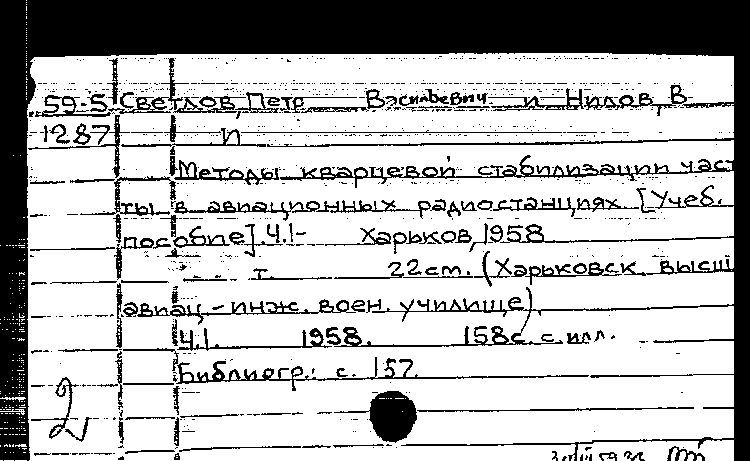 59-5 Светлов, Петр Васильевич и Нилов, В
1287 И
Методы кварцевой стабилизации част
ты в авиационных радиостанциях. [Учеб.
пособие]. Ч.1- Харьков, 1958
т. 22 см. (Харьковск. высш
авиац.-инж. воен. училище).
Ч.1. 1958. 158 с. с илл.
Библиогр.: с. 157.
2